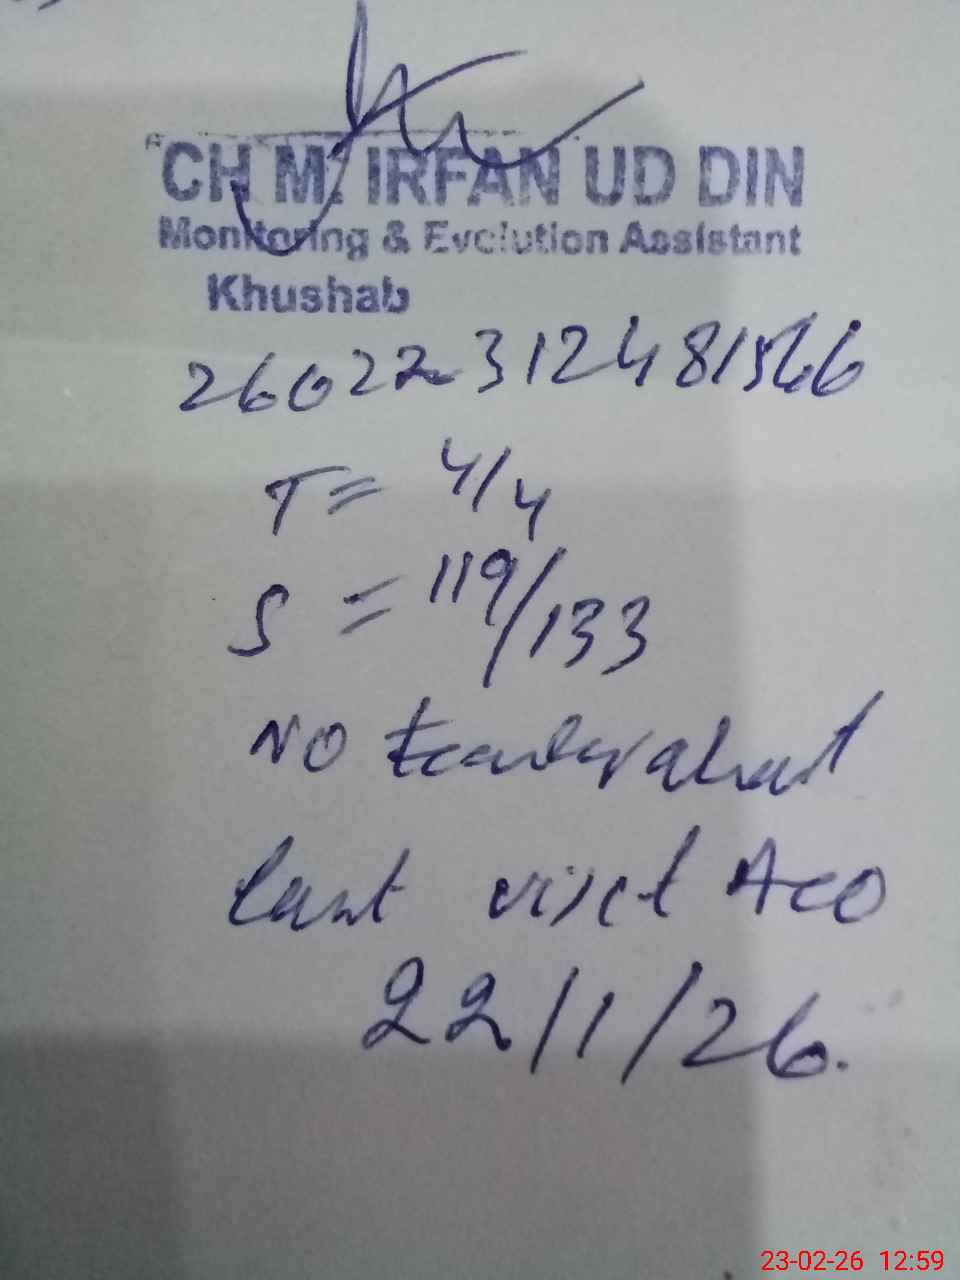 CH M. IRFAN UD DIN
Monitoring & Evolution Assistant
Khushab
26022312481566
T = 4/4
S = 119/133
NO
last visit AEO
22/1/26.
23-02-26 12:59